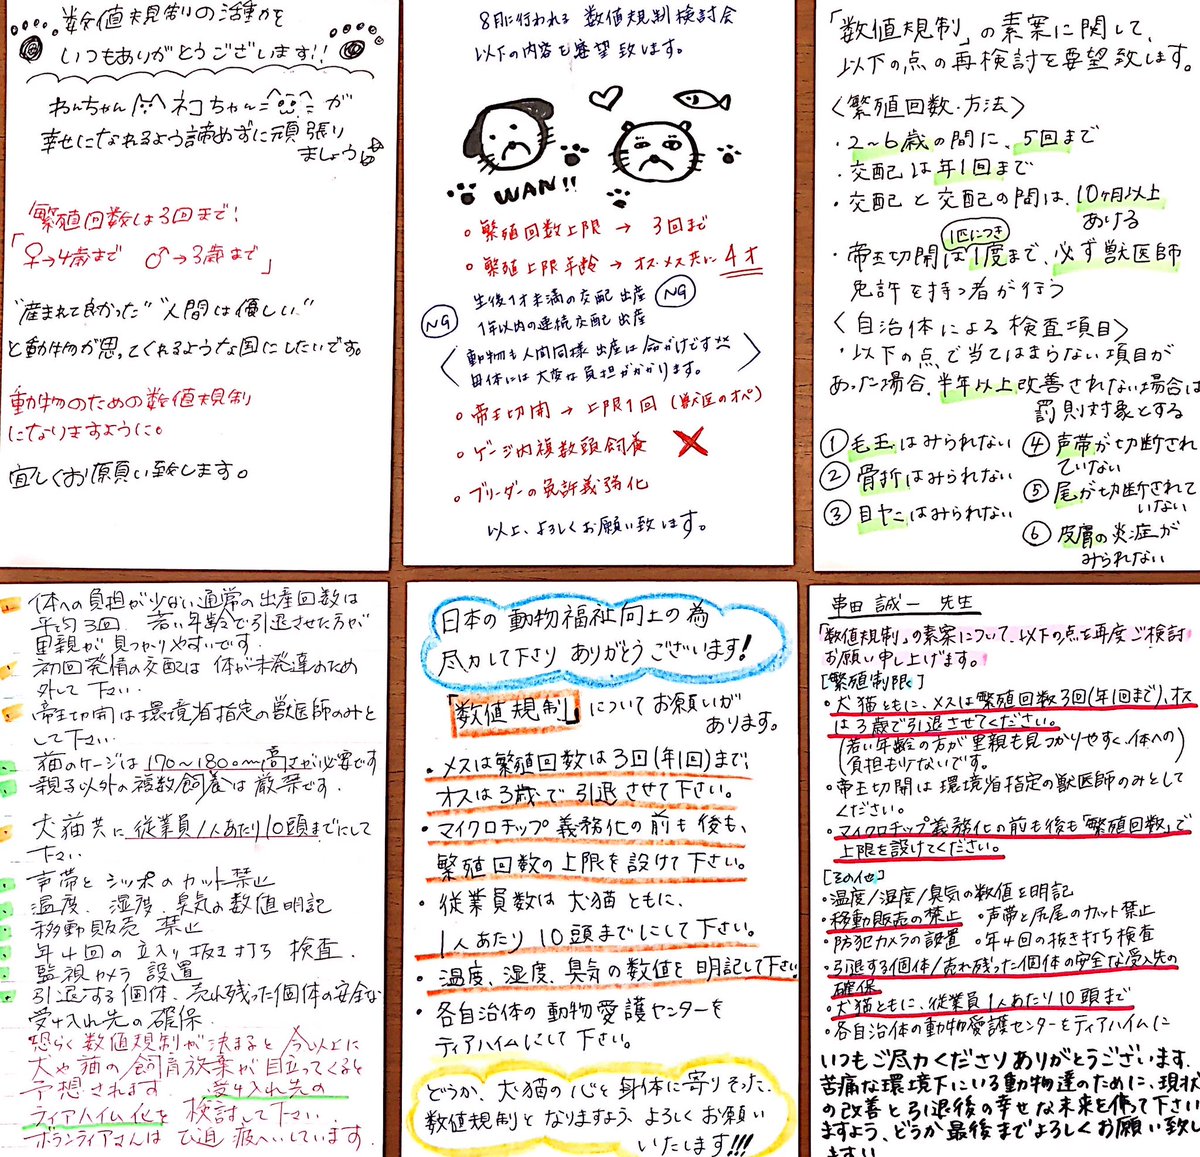 数値規制の活動を
いつもありがとうございます!!
わんちゃん ネコちゃん が
幸せになれるよう諦めずに頑張り
ましょう
繁殖回数は3回まで!
「♀→4歳まで ♂→3歳まで」
"産まれて良かった" "人間は優しい"
と動物が思ってくれるような国にしたいです。
動物のための数値規制
になりますように。
宜しくお願い致します。
8月に行われる 数値規制検討会
以下の内容を要望致します。
WAN!!
繁殖回数上限 → 3回まで
繁殖上限年齢 → オス・メス共に 4才
生後1才未満の交配 出産 NG
NG 1年以内の連続交配 出産
〈動物も人間同様 出産は命がけです
母体には大変な負担がかかります。〉
帝王切開 → 上限1回 (獣医のオペ)
ゲージ内複数頭飼養 ×
ブリーダーの免許義務化
以上、よろしくお願い致します。
「数値規制」の素案に関して、
以下の点の再検討を要望致します。
〈繁殖回数・方法〉
・2〜6歳の間に、5回まで
・交配は年1回まで
・交配と交配の間は、10ヶ月以上
あける
1匹につき
・帝王切開は1度まで、必ず獣医師
免許を持つ者が行う
〈自治体による検査項目〉
・以下の点で当てはまらない項目が
あった場合、半年以上改善されない場合は
罰則対象とする
① 毛玉はみられない
② 骨折はみられない
③ 目ヤニはみられない
④ 声帯が切断され
ていない
⑤ 尾が切断されて
いない
⑥ 皮膚の炎症が
みられない
体への負担が少ない通常の出産回数は
平均3回、若い年齢で引退させた方が
里親が見つかりやすいです。
初回発情の交配は 体が未発達のため
外して下さい。
帝王切開は環境省指定の獣医師のみと
して下さい。
猫のケージは170〜180cm高さが必要です
親子以外の複数飼養は厳禁です。
犬猫共に従業員1人あたり10頭までにして
下さい
声帯とシッポのカット禁止
温度、湿度、臭気の数値明記
移動販売 禁止
年4回の立入り抜き打ち検査
監視カメラ設置
引退する個体、売れ残った個体の安全な
受け入れ先の確保
恐らく数値規制が決まると今以上に
犬や猫の飼育放棄が目立ってくると
予想されます 受け入れ先の
ティアハイム化を検討して下さい
ボランティアさんはひ迫 疲へいしています。
日本の動物福祉向上の為
尽力して下さり ありがとうございます!
「数値規制」についてお願いが
あります。
・メスは繁殖回数は3回(年1回)まで、
オスは3歳で引退させて下さい。
・マイクロチップ義務化の前も後も、
繁殖回数の上限を設けて下さい。
・従業員数は犬猫ともに、
1人あたり10頭までにして下さい。
・温度、湿度、臭気の数値を明記して下さい
・各自治体の動物愛護センターを
ティアハイムにして下さい。
どうか、犬猫の心と身体に寄りそった、
数値規制となりますよう、よろしくお願い
いたします!!!
串田 誠一 先生
「数値規制」の素案について、以下の点を再度ご検討
お願い申し上げます。
[繁殖制限]
・犬猫ともに、メスは繁殖回数3回(年1回まで)、オス
は3歳で引退させてください。
(若い年齢の方が里親も見つかりやすく、体への
負担も少ないです。
・帝王切開は環境省指定の獣医師のみとして
ください。
・マイクロチップ義務化の前も後も「繁殖回数」で
上限を設けてください。
[その他]
・温度/湿度/臭気の数値を明記
・移動販売の禁止 ・声帯と尻尾のカット禁止
・防犯カメラの設置 ・年4回の抜き打ち検査
・引退する個体/売れ残った個体の安全な受入先の
確保
・犬猫ともに、従業員1人あたり10頭まで
・各自治体の動物愛護センターをティアハイムに
いつもご尽力くださりありがとうございます。
苦痛な環境下にいる動物達のために、現状
の改善と引退後の幸せな未来を作って下さい
ますよう、どうか最後までよろしくお願い致し
ます